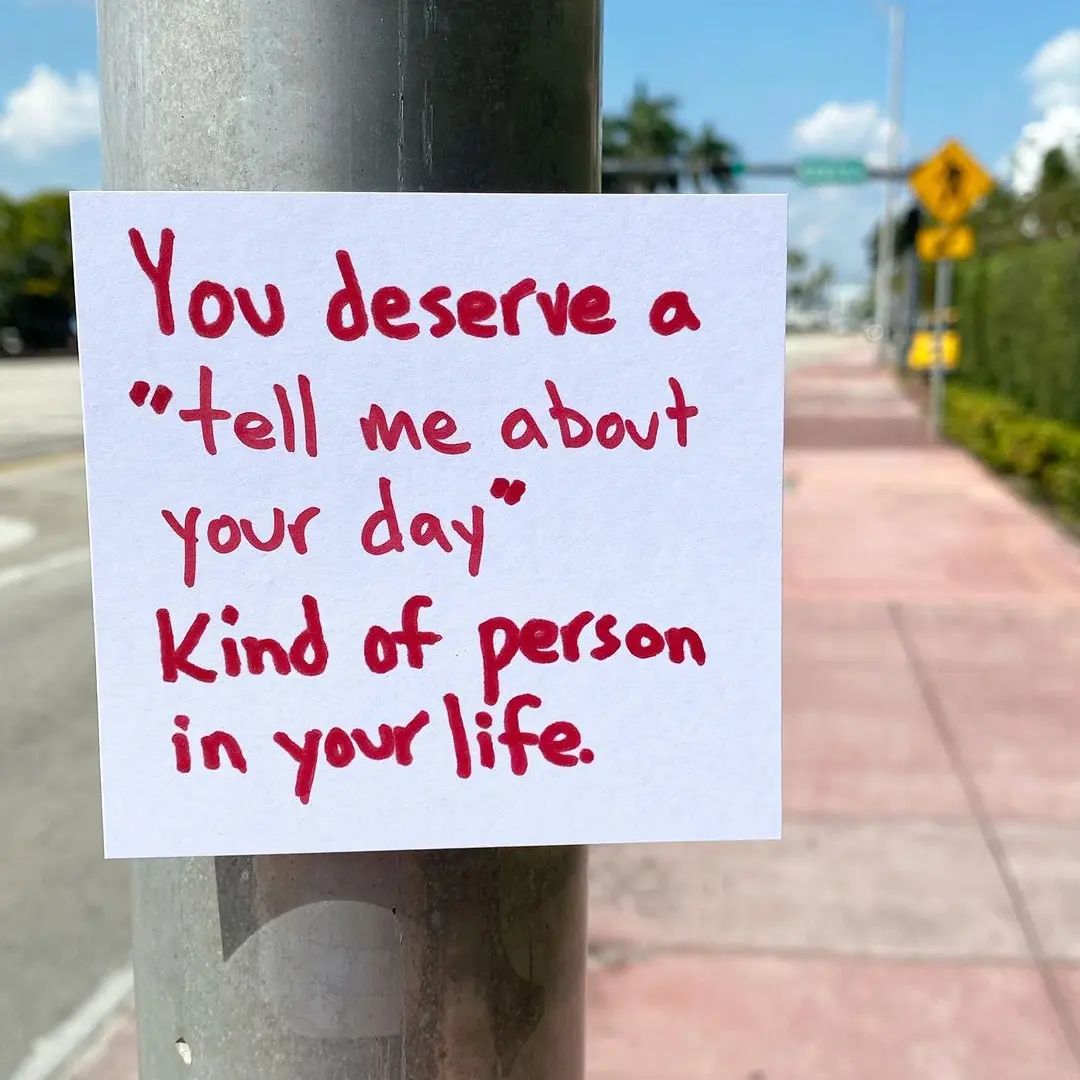 You deserve a
"tell me about
your day"
Kind of person
in your life.